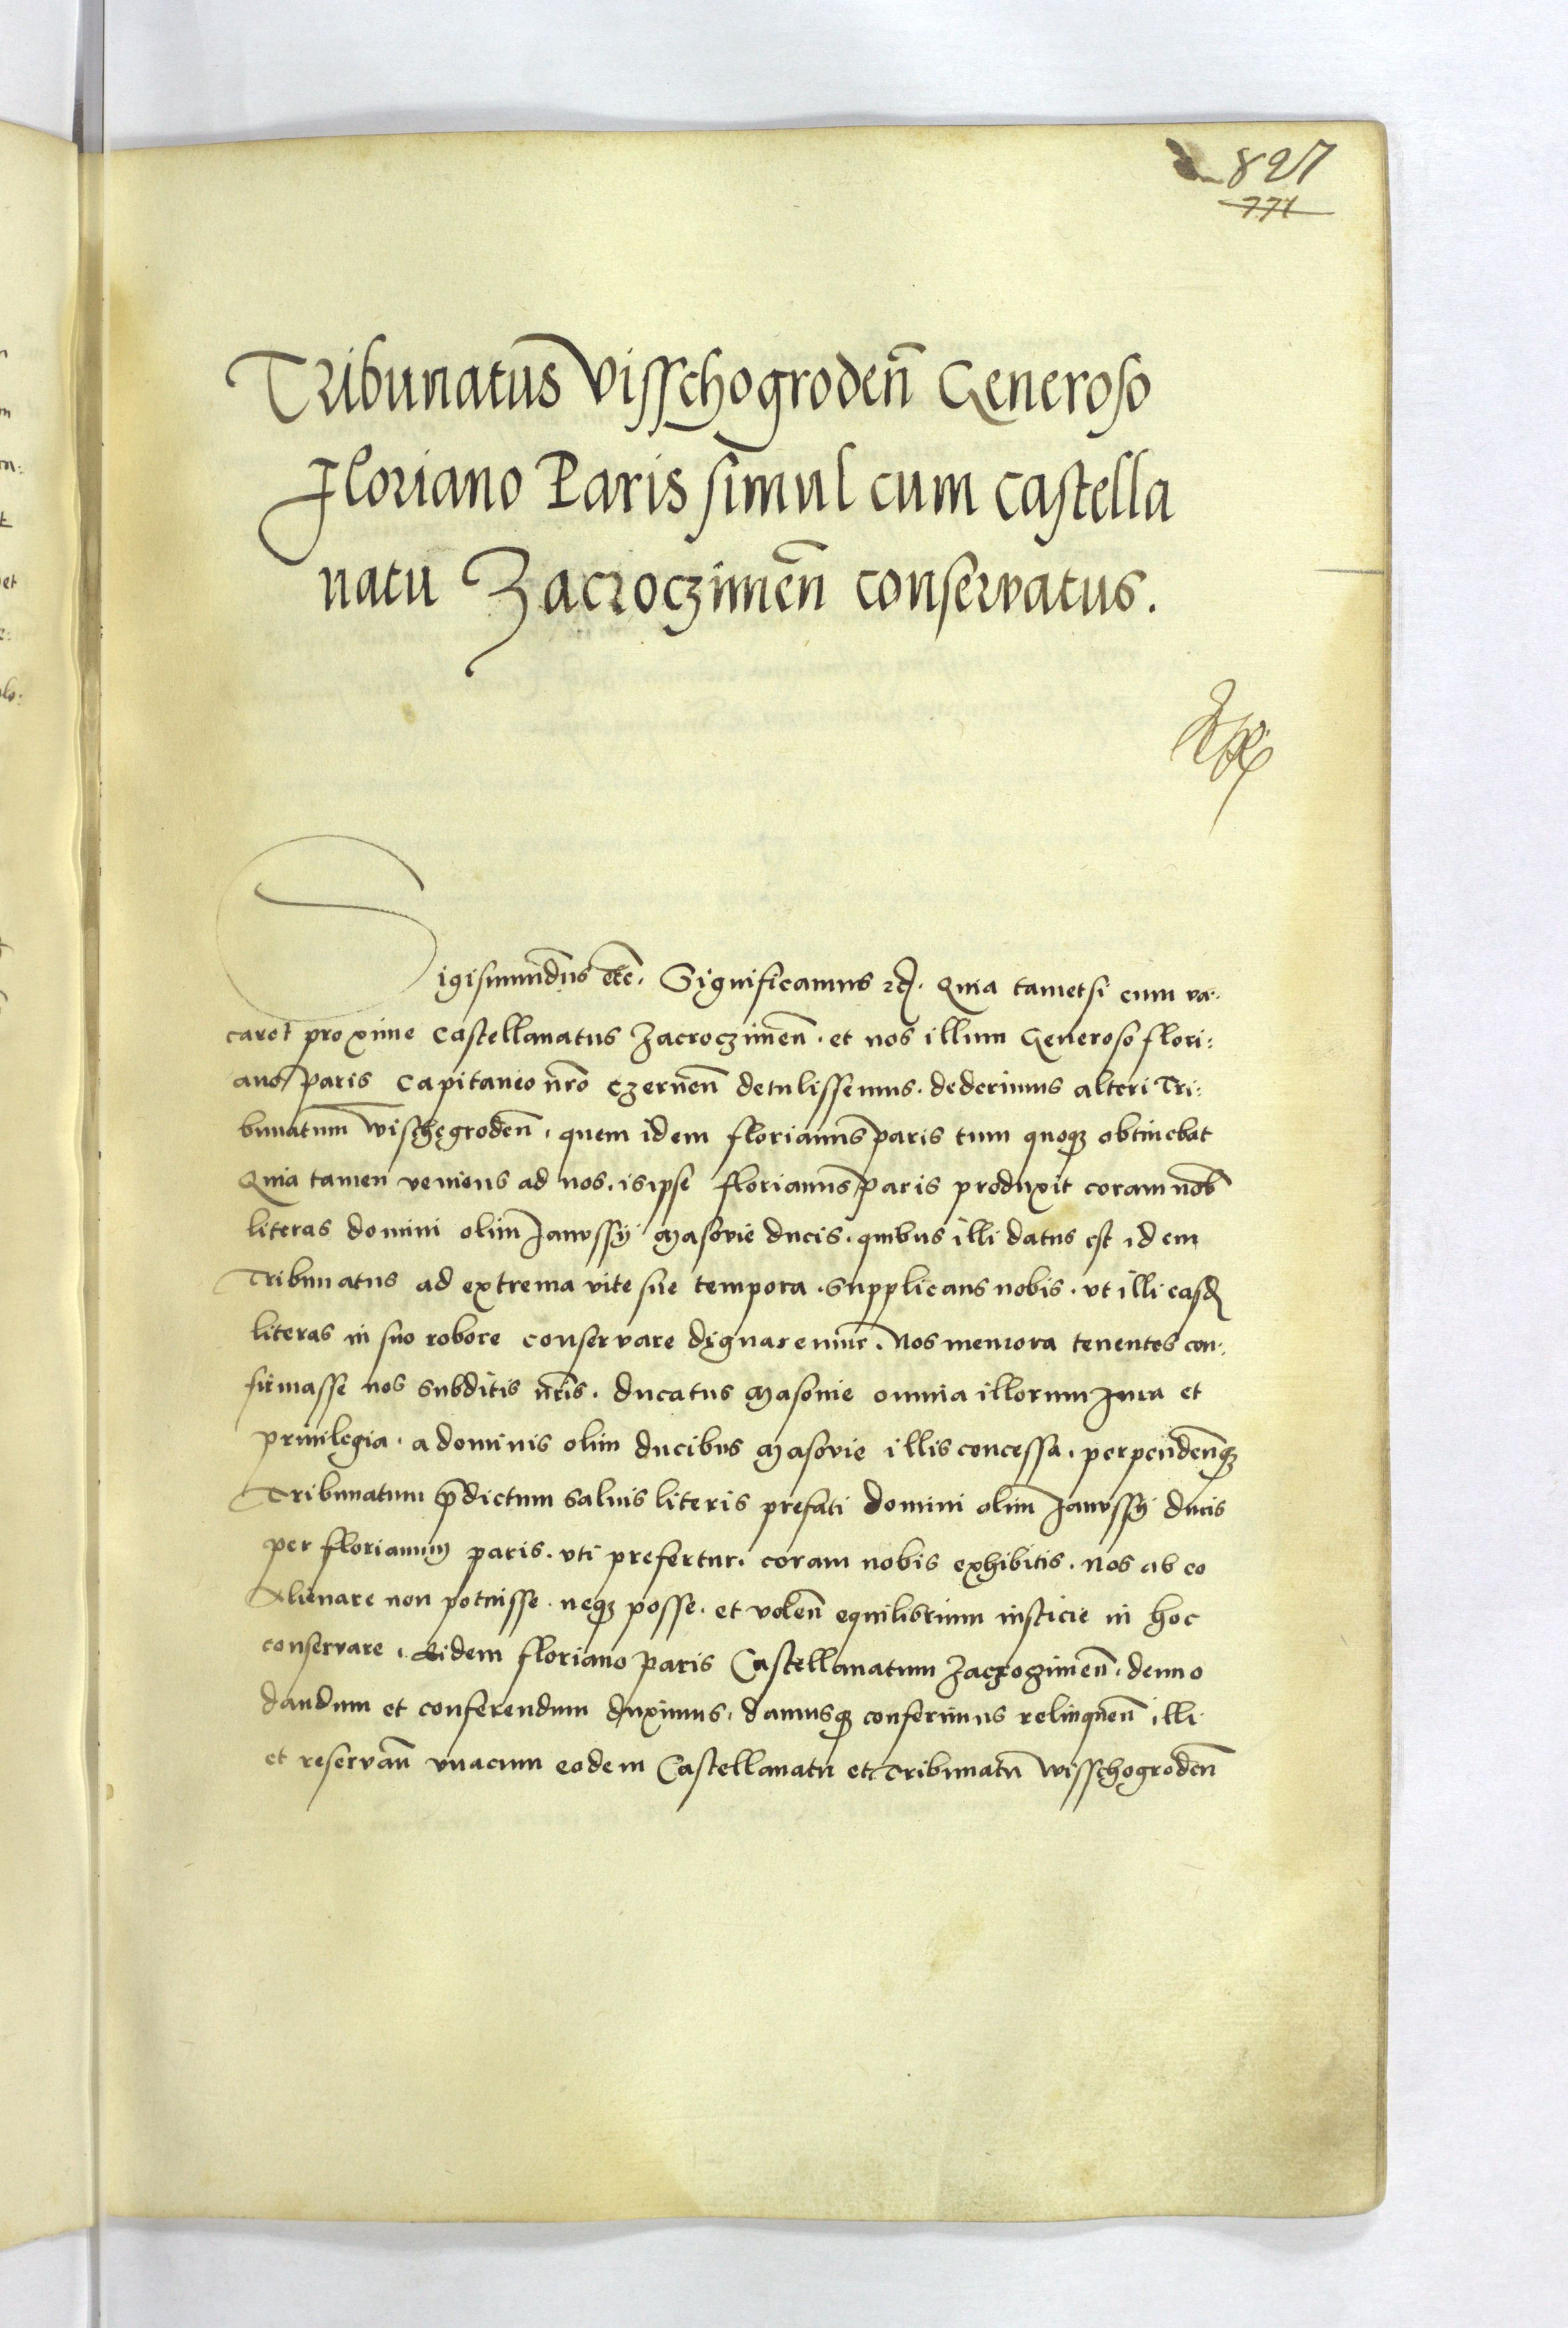 827
771
Tribunatus Visschogroden̄ Generoso
Floriano Paris simul cum castella
natu Zacroczimen̄ conservatus.
Sigismundus etc̄. Significamus rc̄. Quia tametsi cum va-
caret proxime Castellanatus Zacroczimen̄. et nos illum Generoso flori:
ano Paris Capitaneo nr̄o Czernen̄ detulissemus. dederimus alteri Tri:
bunatum Wischegroden̄. quem idem florianus paris tum quoqȝ obtinebat
Quia tamen veniens ad nos. is ipse florianus paris produxit coram nob̄
literas domini olim Janussij Masovie ducis. quibus illi datus est idem
Tribunatus ad extrema vite sue tempora. Supplicans nobis. vt illi easd̄
literas in suo robore conservare dignaremur. Nos memora tenentes con-
firmasse nos subditis nr̄is. ducatus Masouie omnia illorum Jura et
priuilegia. a dominis olim ducibus Masovie illis concessa. perpenden̄qȝ
Tribunatum p̄dictum saluis literis prefati domini olim Janussij ducis
per florianum paris. vti prefertur. coram nobis exhibitis. nos ab eo
Alienare non potuisse. neqȝ posse. et volen̄ equilibrium iusticie in hoc
conservare. Eidem floriano paris Castellanatum Zacroczimen̄. denuo
dandum et conferendum duximus. damusqȝ conferimus relinquen̄ illi
et reservan̄ vnacum eodem Castellanatu et Tribunatū Wisschogroden̄